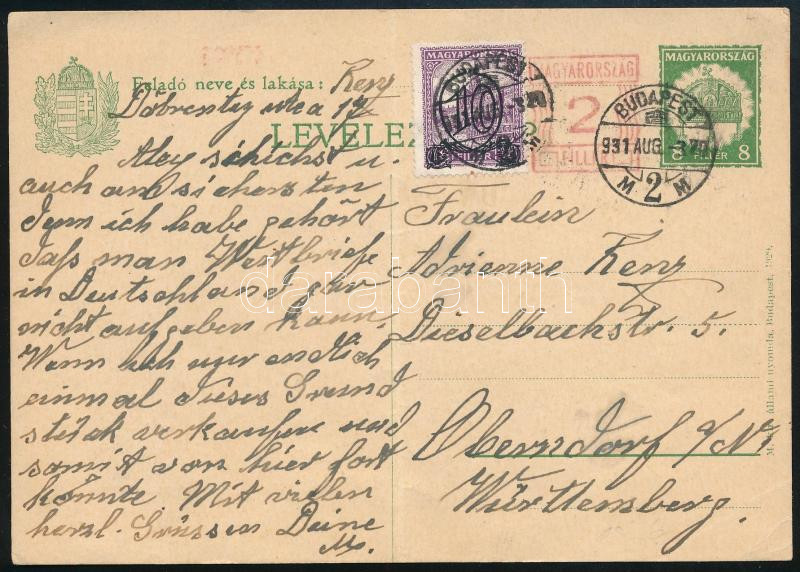 Feladó neve és lakása: Kenz
Döbrentey utca 12
LEVELEZ
MAGYARORSZÁG
10
FILLÉR
BUDAPEST
MAGYARORSZÁG
2
FILLÉR
MAGYARORSZÁG
8 FILLÉR 8
BUDAPEST
931 AUG.
M 2 M
u.
auch am sichersten
Denn ich habe gehört
daß man Wertbriefe
in Deutschland gar
nicht aufgeben kann.
Wenn ich nur endlich
einmal dieses Grund
stück verkaufen und
somit von hier fort
könnte. Mit vielen
herzl. Grüssen Deine
Fraulein
Adrienne Kenz
Dieselbachstr. 5.
Oberndorf a/N.
Württemberg.
M. kir. állami nyomda, Budapest, 1929.
darabanth